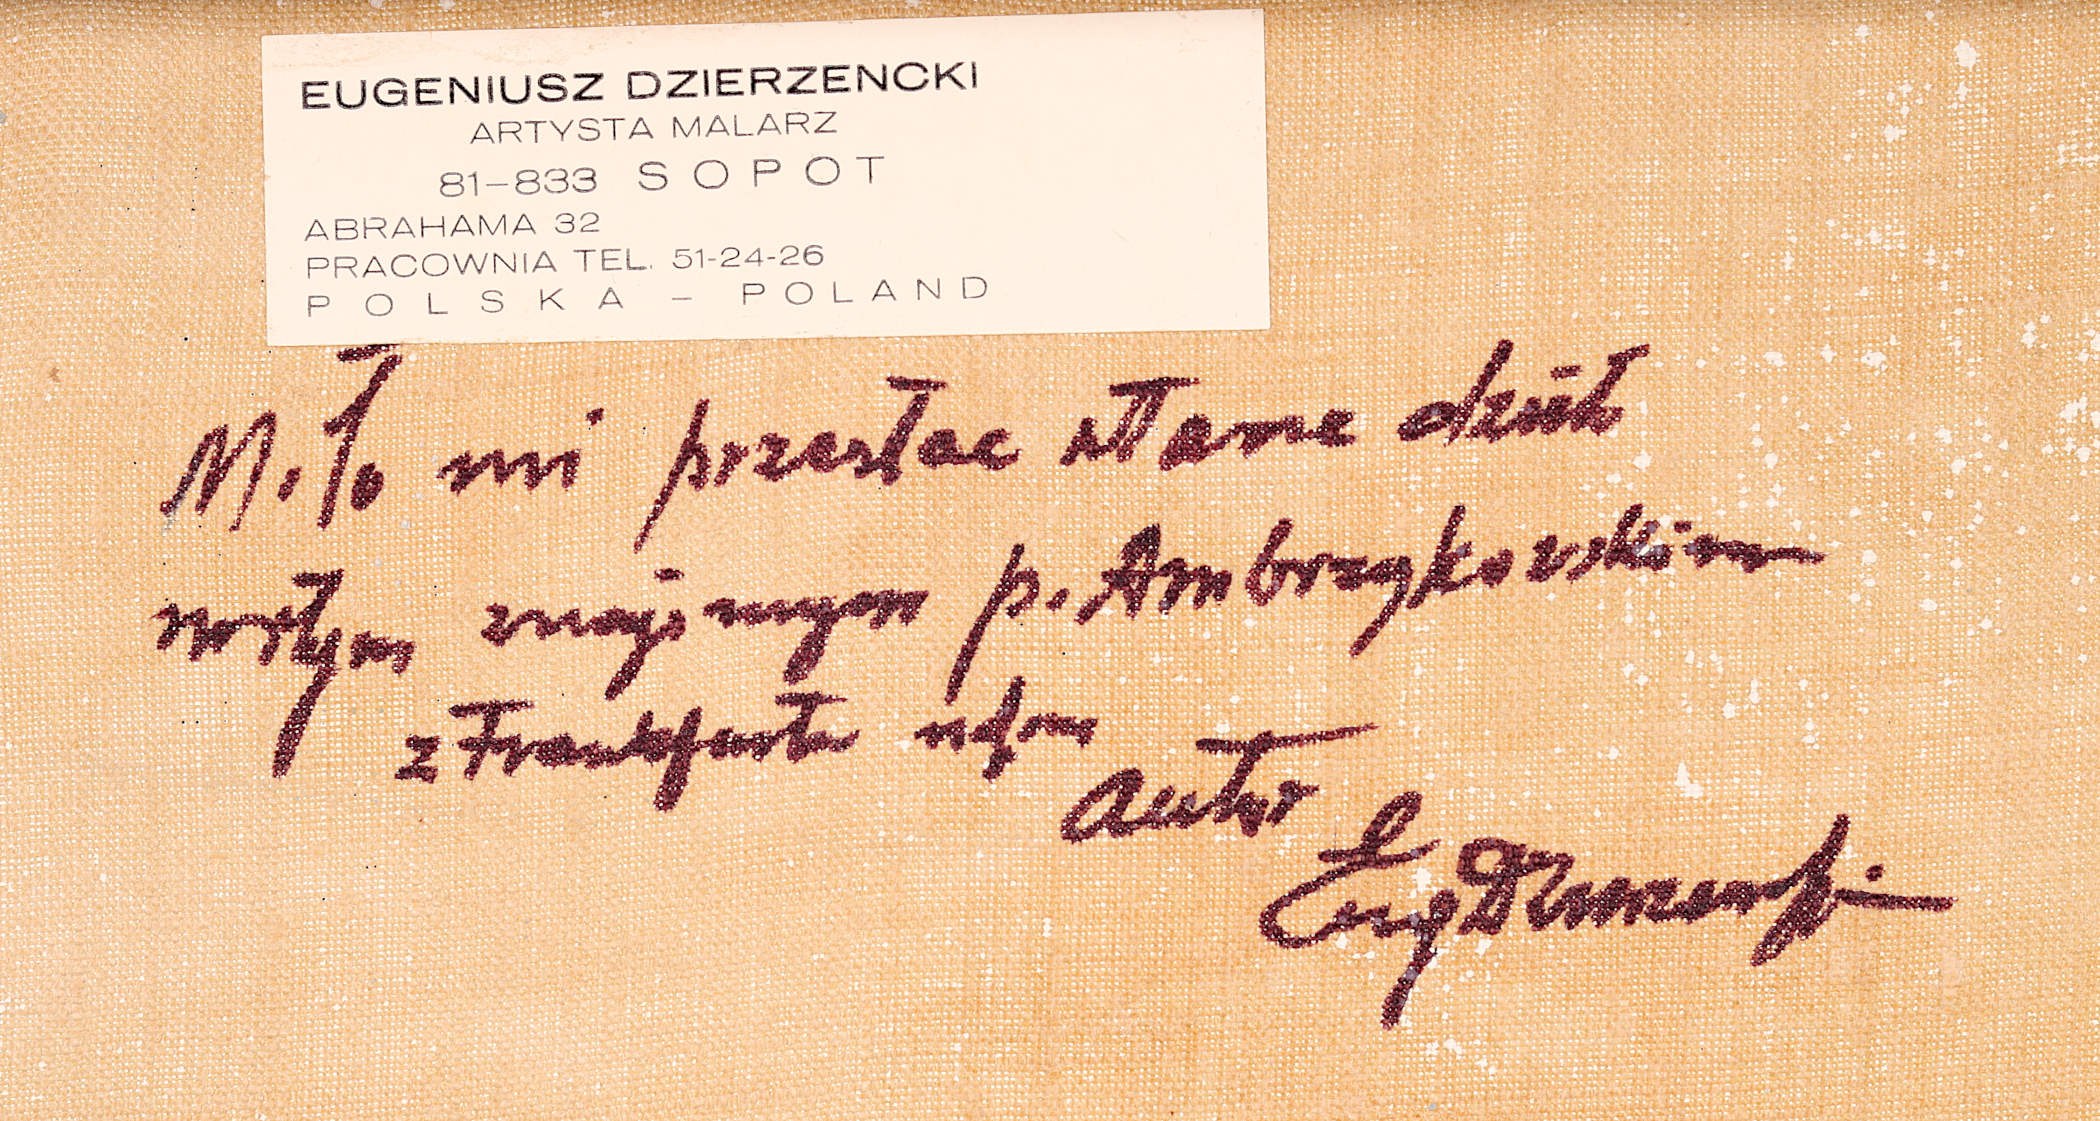 EUGENIUSZ DZIERZENCKI
ARTYSTA MALARZ
81-833 SOPOT
ABRAHAMA 32
PRACOWNIA TEL. 51-24-26
POLSKA - POLAND
Miło mi przesłac własne dzieło
znajomym p. Ambrzykowskim
z Frankfurtu n/m
autor
Eug Dzierzencki